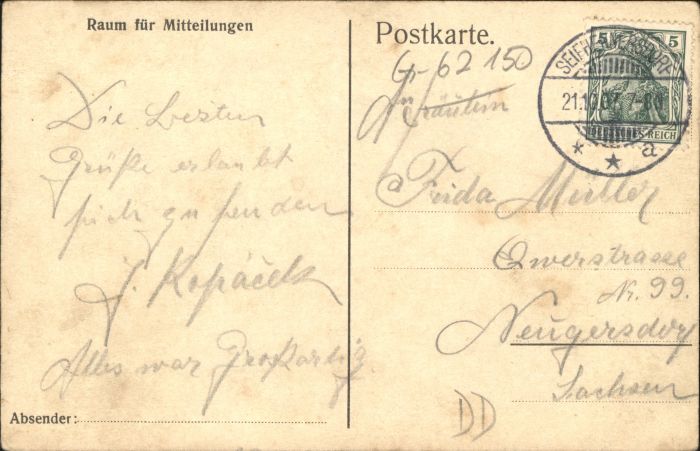 Raum für Mitteilungen
Die besten
Grüße erlaubt
sich zu senden
J. Kopáček
Alles war Großartig
Absender:
Postkarte.
Gr 62 150
An Fräulein
Frida Müller
Qwerstrasse
Nr. 99.
Neugersdorf
Sachsen
DD
SEIFHENNERSDORF
21.10.07. 7-8
* * a
5 5
REICH